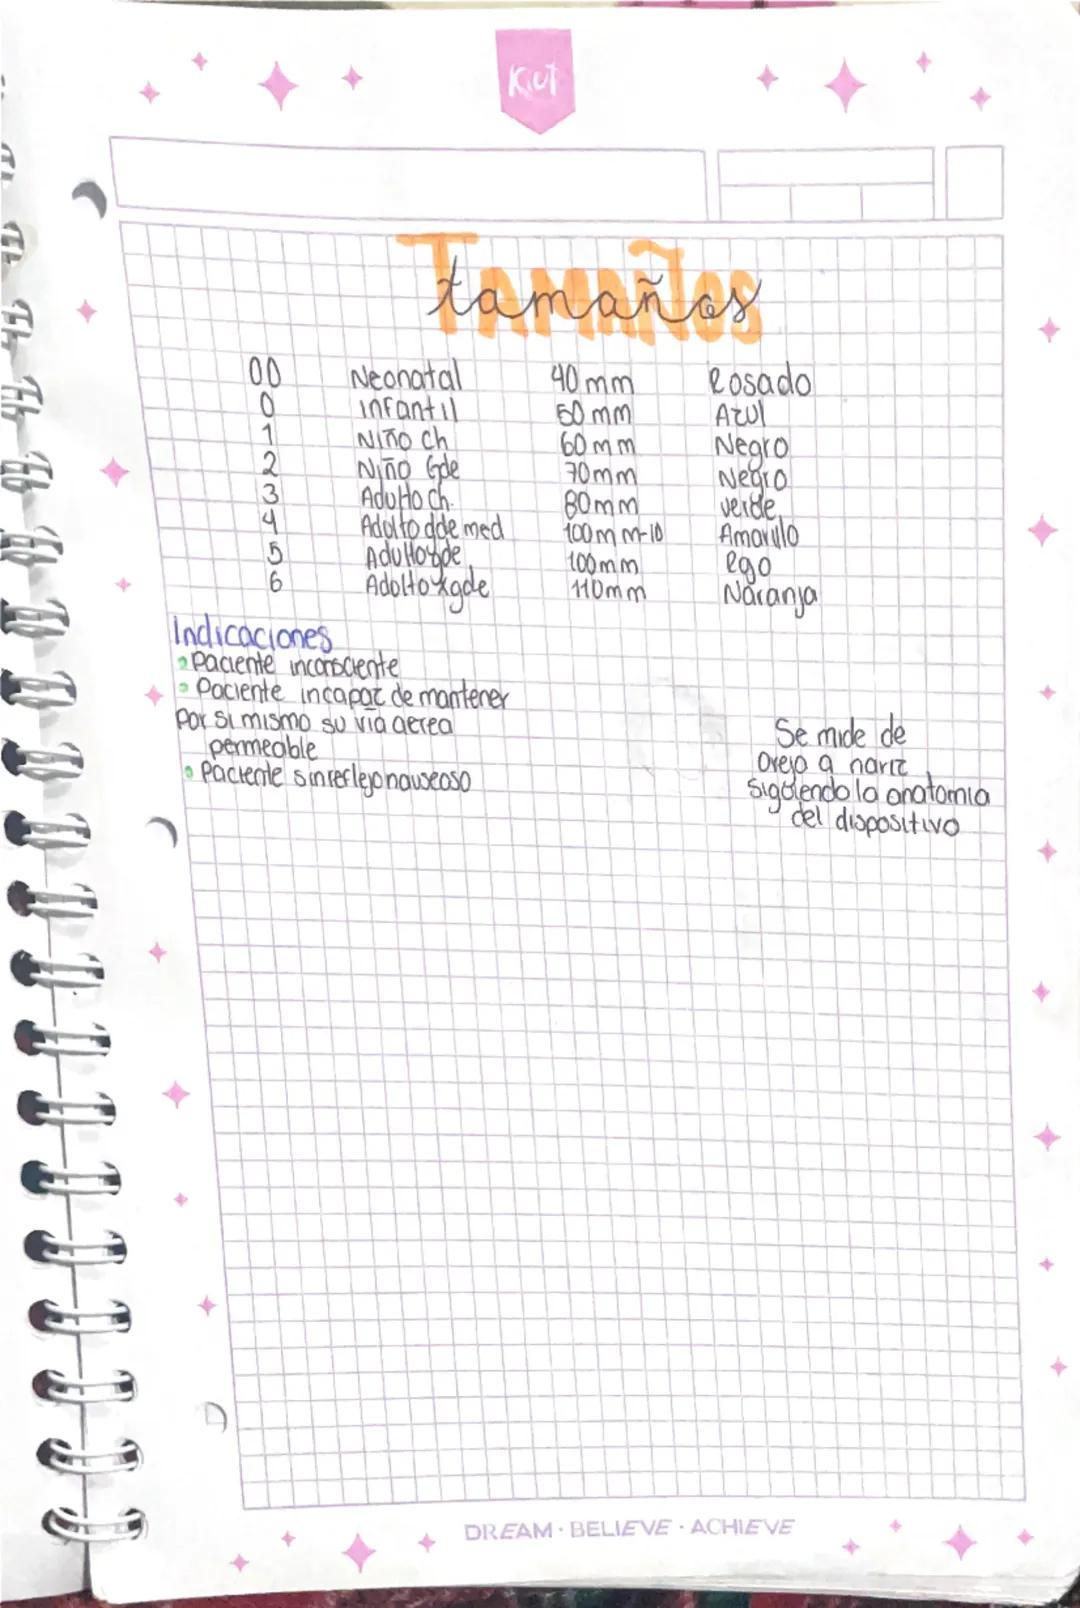 Kiut
Tamaños
tamaños
00 Neonatal 40mm Rosado
0 infantil 50mm Azul
1 Niño ch 60mm Negro
2 Niño Gde 70mm Negro
3 Adulto ch. 80mm verde
4 Adulto gde med 100mm-10 Amarillo
5 Adulto gde 100mm Rojo
6 Adulto xgde 110mm Naranja
Indicaciones
Paciente inconsciente
Paciente incapaz de mantener
por si mismo su via aerea
permeable
Paciente sin reflejo nauseoso
Se mide de
oreja a nariz
siguiendo la anatomia
del dispositivo
DREAM · BELIEVE · ACHIEVE